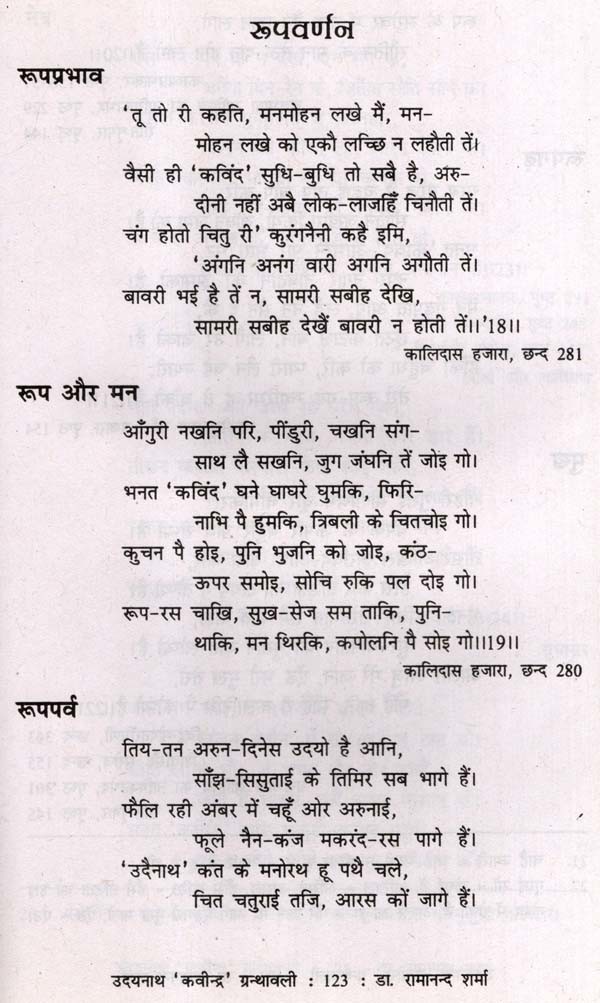 रूपवर्णन
रूपप्रभाव
'तू तो री कहति, मनमोहन लखे मैं, मन-
मोहन लखे को एकौ लच्छि न लहौती तें।
वैसी ही 'कविंद' सुधि-बुधि तो सबै है, अंरु-
दीनी नहीं अबै लोक-लाजहिँ चिनौती तें।
चंग होतो चितु री' कुरंगनैनी कहै इमि,
'अंगनि अनंग वारी अगनि अगौती तें।
बावरी भई है तें न, सामरी सबीह देखि,
सामरी सबीह देखैं बावरी न होती तें।।'18।।
कालिदास हजारा, छन्द 281
रूप और मन
आँगुरी नखनि परि, पींडुरी, चखनि संग-
साथ लै सखनि, जुग जंघनि तें जोइ गो।
भनत 'कविंद' घने घाघरे घुमकि, फिरि-
नाभि पै हुमकि, त्रिबली के चितचोइ गो।
कुचन पै होइ, पुनि भुजनि को जोइ, कंठ-
ऊपर समोइ, सोचि रुकि पल दोइ गो।
रूप-रस चाखि, सुख-सेज सम ताकि, पुनि-
थाकि, मन थिरकि, कपोलनि पै सोइ गो।।19।।
कालिदास हजारा, छन्द 280
रूपपर्व
तिय-तन अरुन-दिनेस उदयो है आनि,
साँझ-सिसुताई के तिमिर सब भागे हैं।
फैलि रही अंबर में चहूँ ओर अरुनाई,
फूले नैन-कंज मकरंद-रस पागे हैं।
'उदैनाथ' कंत के मनोरथ हू पथै चले,
चित चतुराई तजि, आरस को जागे हैं।
उदयनाथ 'कवीन्द्र' ग्रन्थावली : 123 : डा. रामानन्द शर्मा